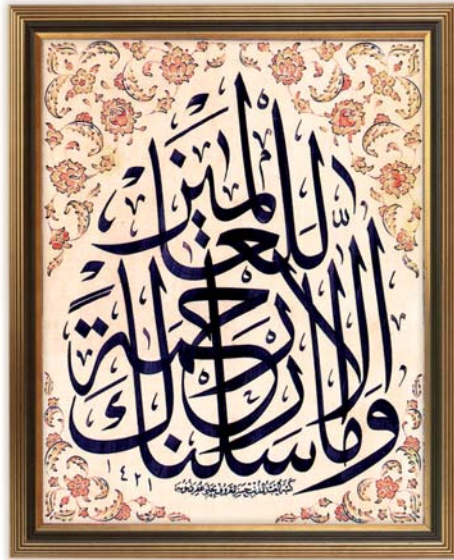 وما أرسلناك إلا رحمة للعالمين
١٤٢١